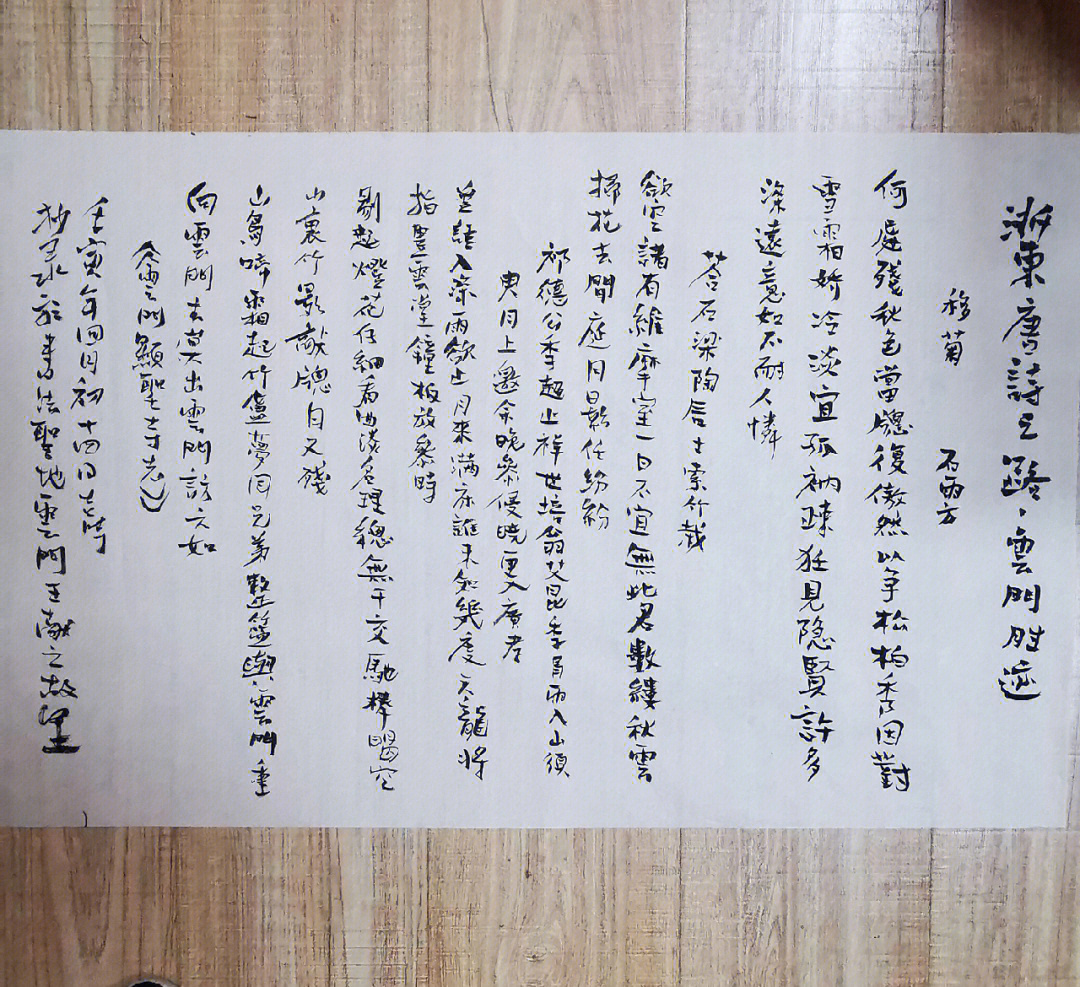 浙東唐詩之路、雲門勝迹
移菊 石雨方
何處殘秋色當牕復傲然以爭松柏秀因對
雪霜妍冷淡宜孤衲踈狂見隐賢許多
深遠意如不耐人憐
荅石梁陶居士索竹栽
欲空諸有維摩室一日不宜無此君數縷秋雲
掃花去閒庭月影任紛紛
祁德公季超止祥世培翁艾昆季冒雨入山須
臾月上邀余晚參侵曉更入廣孝
並語入深雨欲止月來满床誰未知幾度天龍將
指豎雲堂鐘板放參時
剔起燈花仔細看函名理總無干交馳棒喝空
山裏竹影敲牕月又殘
山鳥啼霜起竹盧夢回兄弟整籃輿雲門重
向雲門去出雲門訪六如
(雲門顯聖寺志)
壬寅年四月初十四日
抄录於書法聖地雲門王献之故里